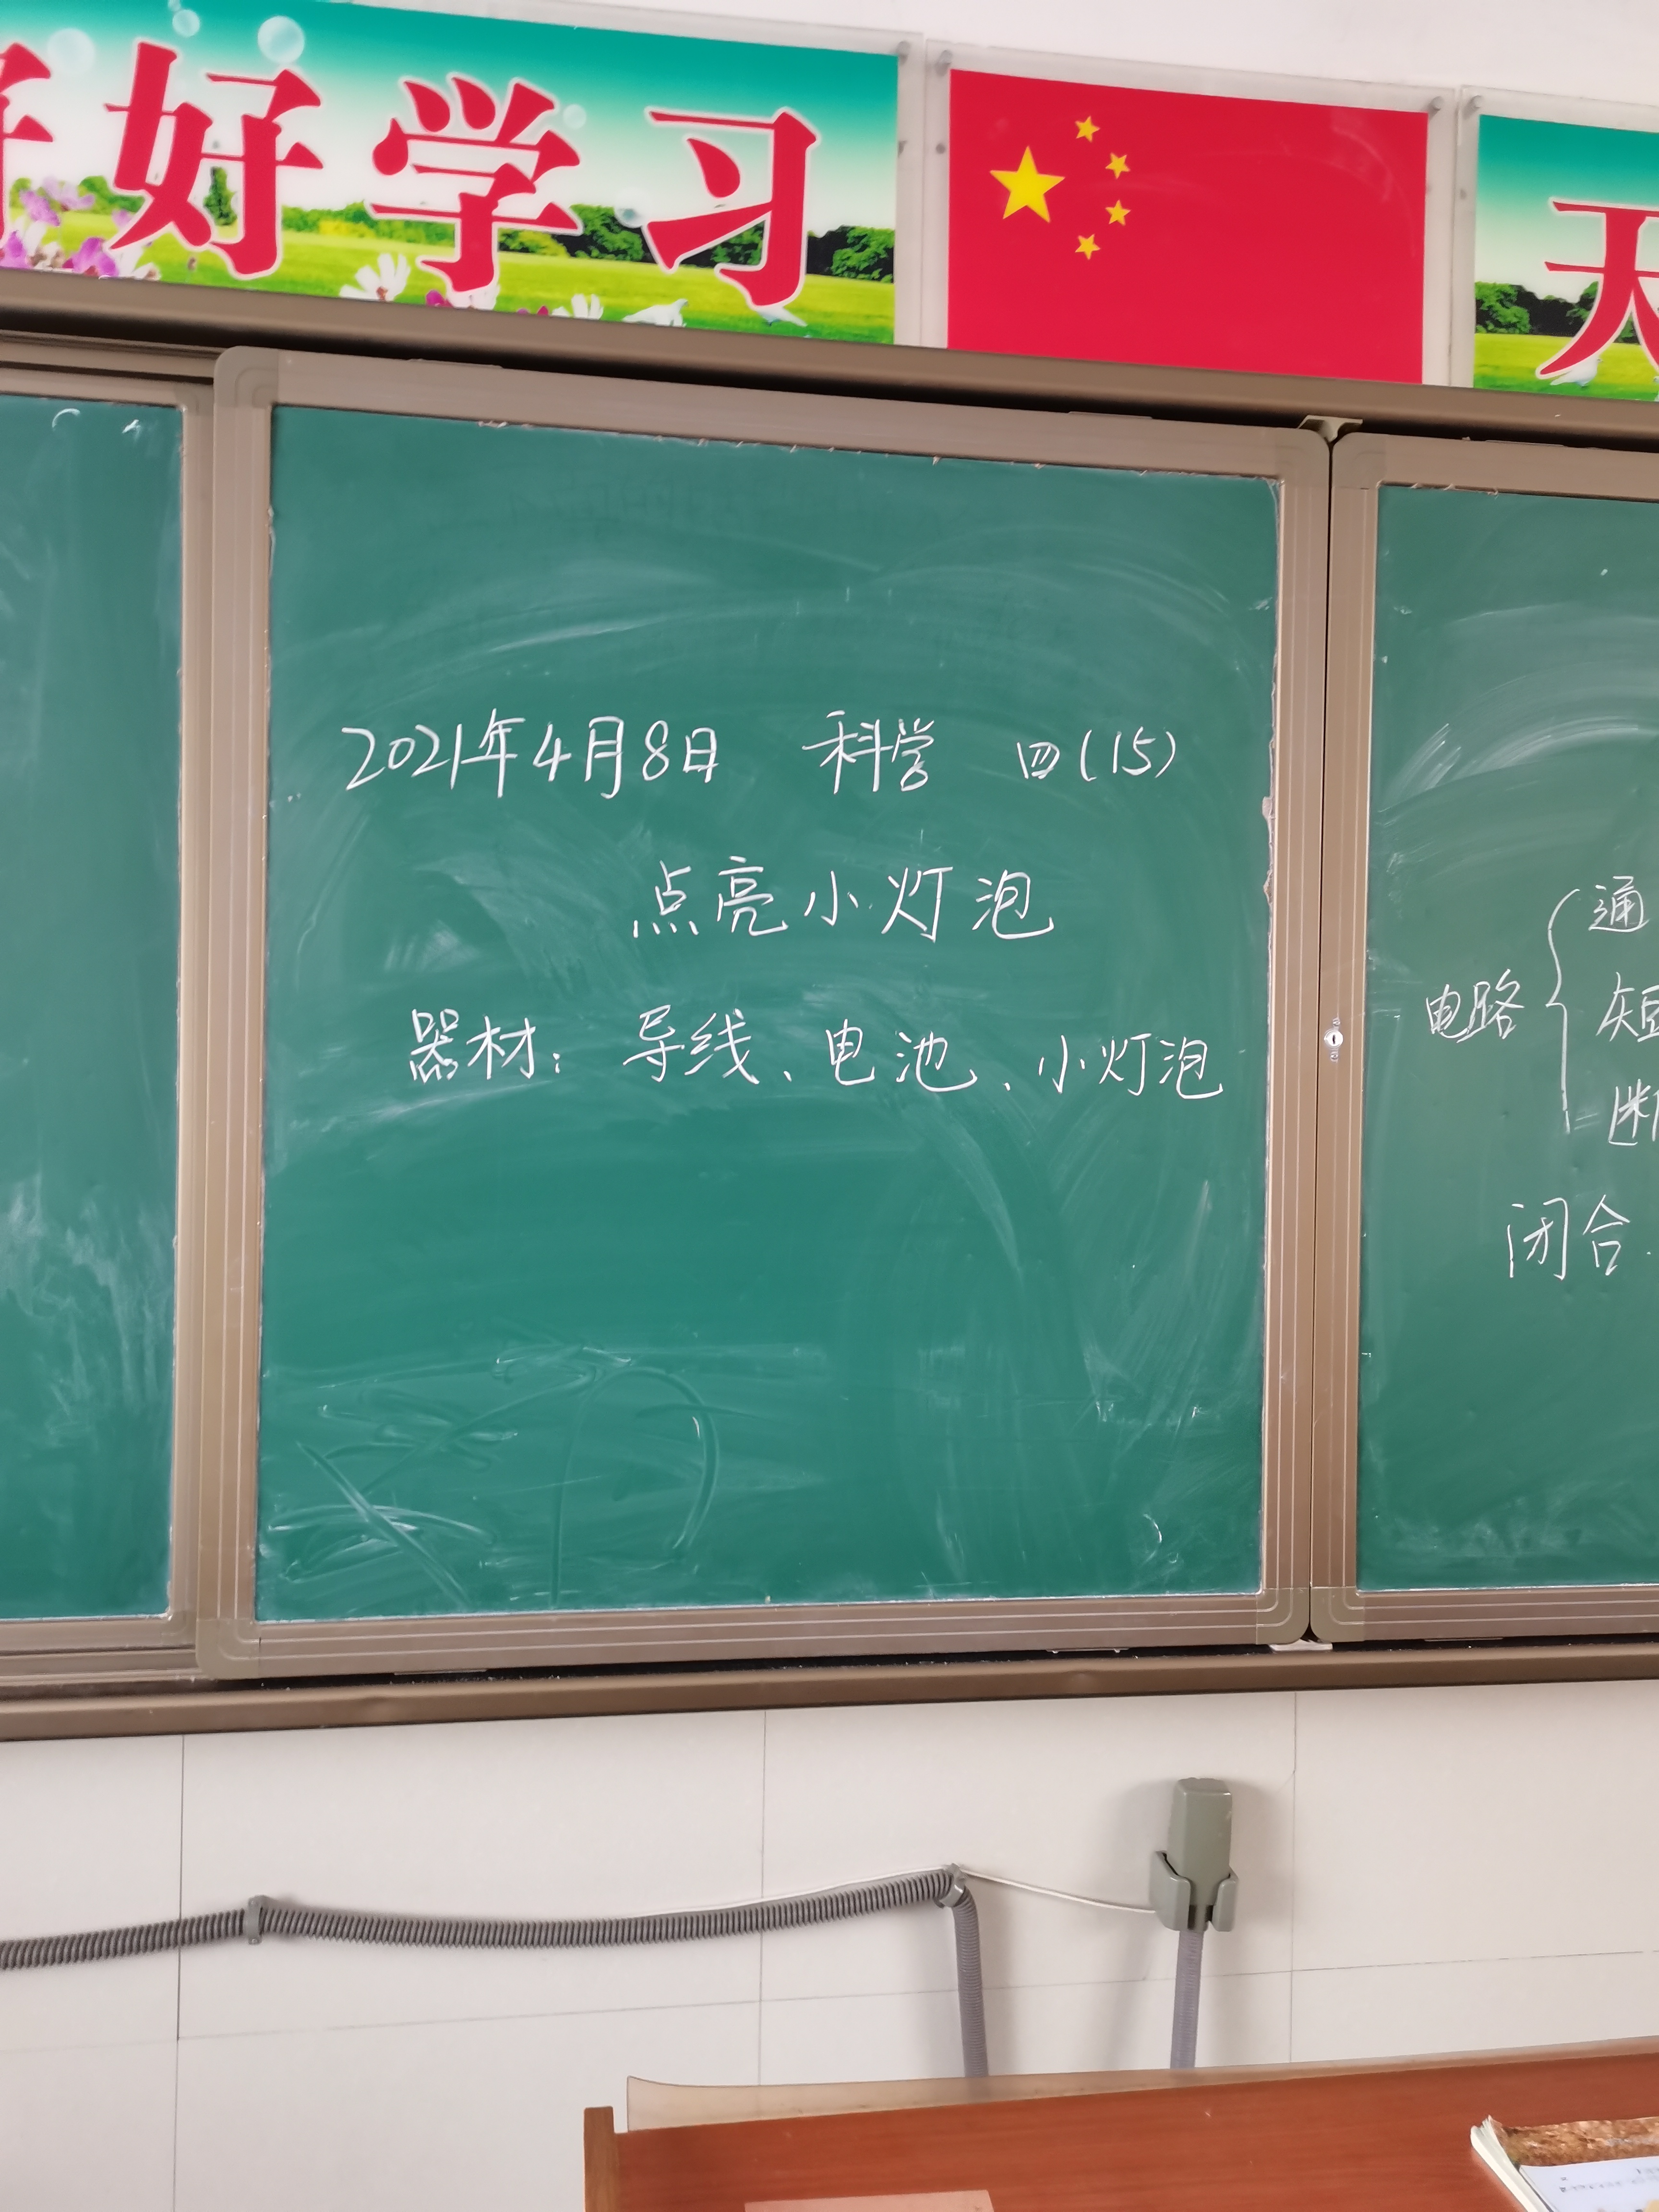 好好学习
天
2021年4月8日 科学 四(15)
点亮小灯泡
器材：导线、电池、小灯泡
电路
通
短
断
闭合.